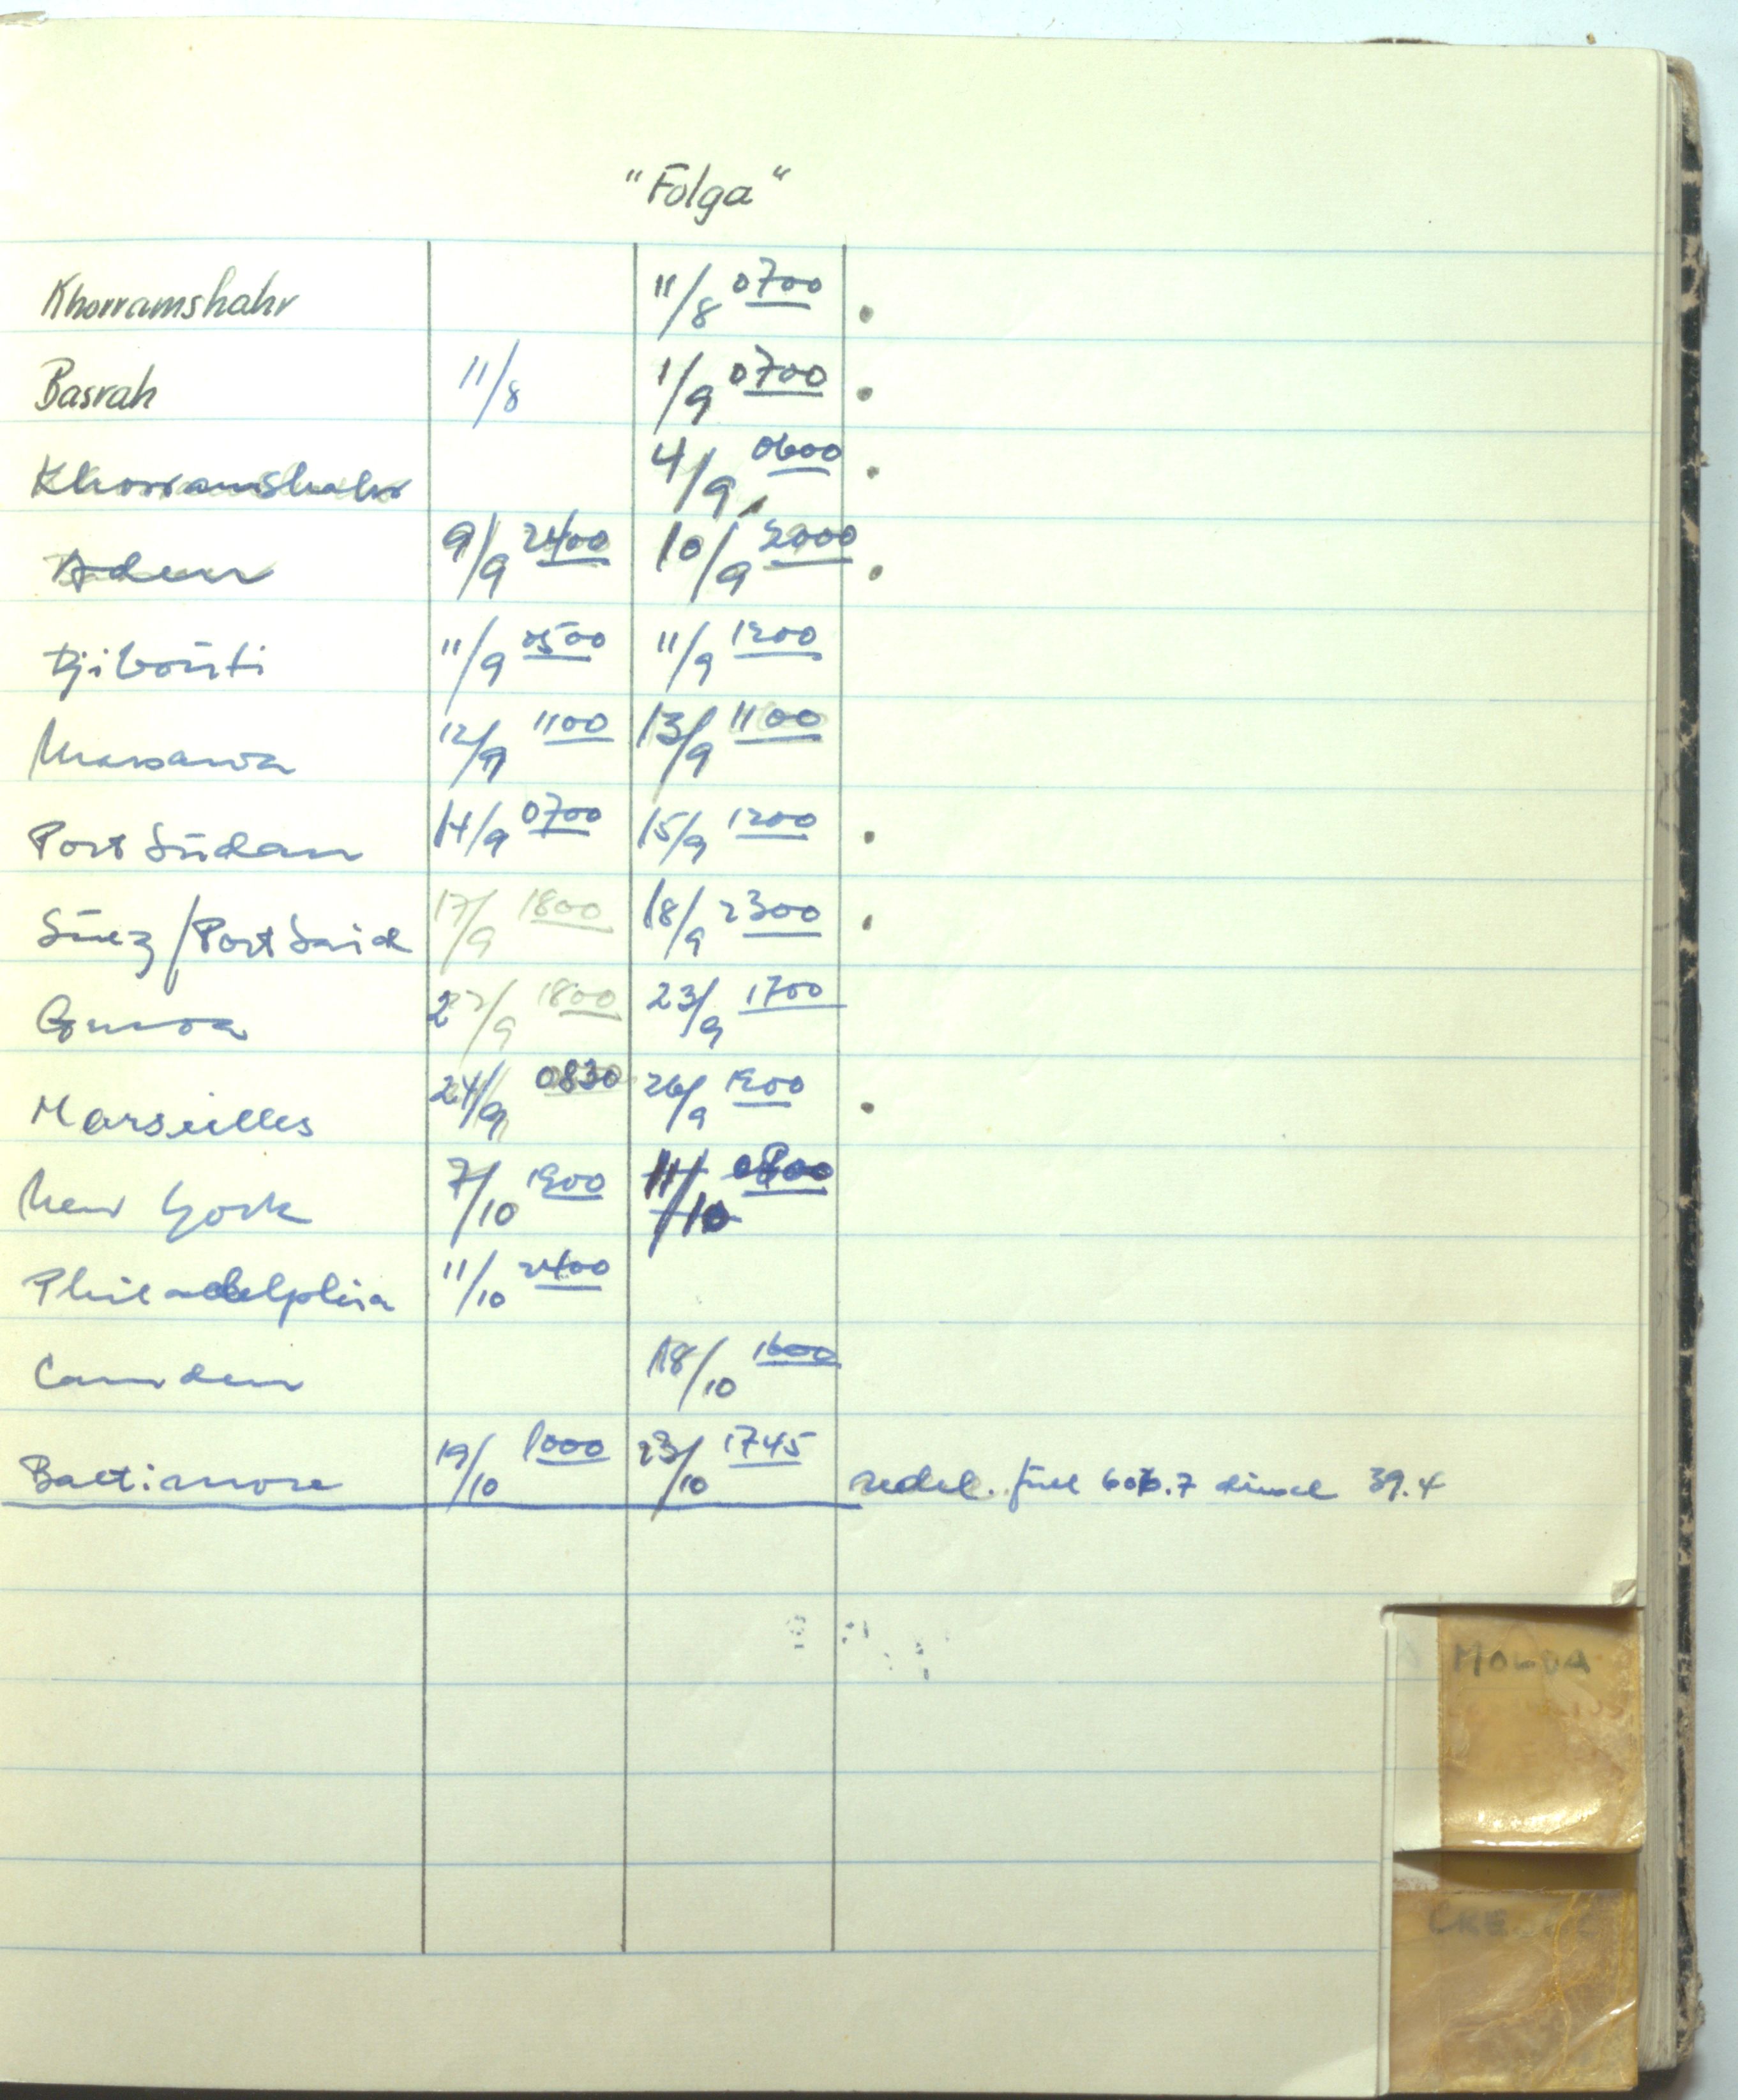 "Folga"
Khorramshahr 11/8 0700
Basrah 11/8 1/9 0700
Khorramshahr 4/9 0600
Aden 9/9 2400 10/9 2000
Djibouti 11/9 0500 11/9 1200
Massawa 12/9 1100 13/9 1100
Port Sudan 14/9 0700 15/9 1200
Suez/Port Said 17/9 1800 18/9 2300
Genoa 22/9 1800 23/9 1700
Marseilles 24/9 0830 26/9 1200
New York 7/10 1900 11/10
Philadelphia 11/10 2400
Camden 18/10 1600
Baltimore 19/10 1000 23/10 1745 redel. fuel 606.7 diesel 39.4
MOLDA